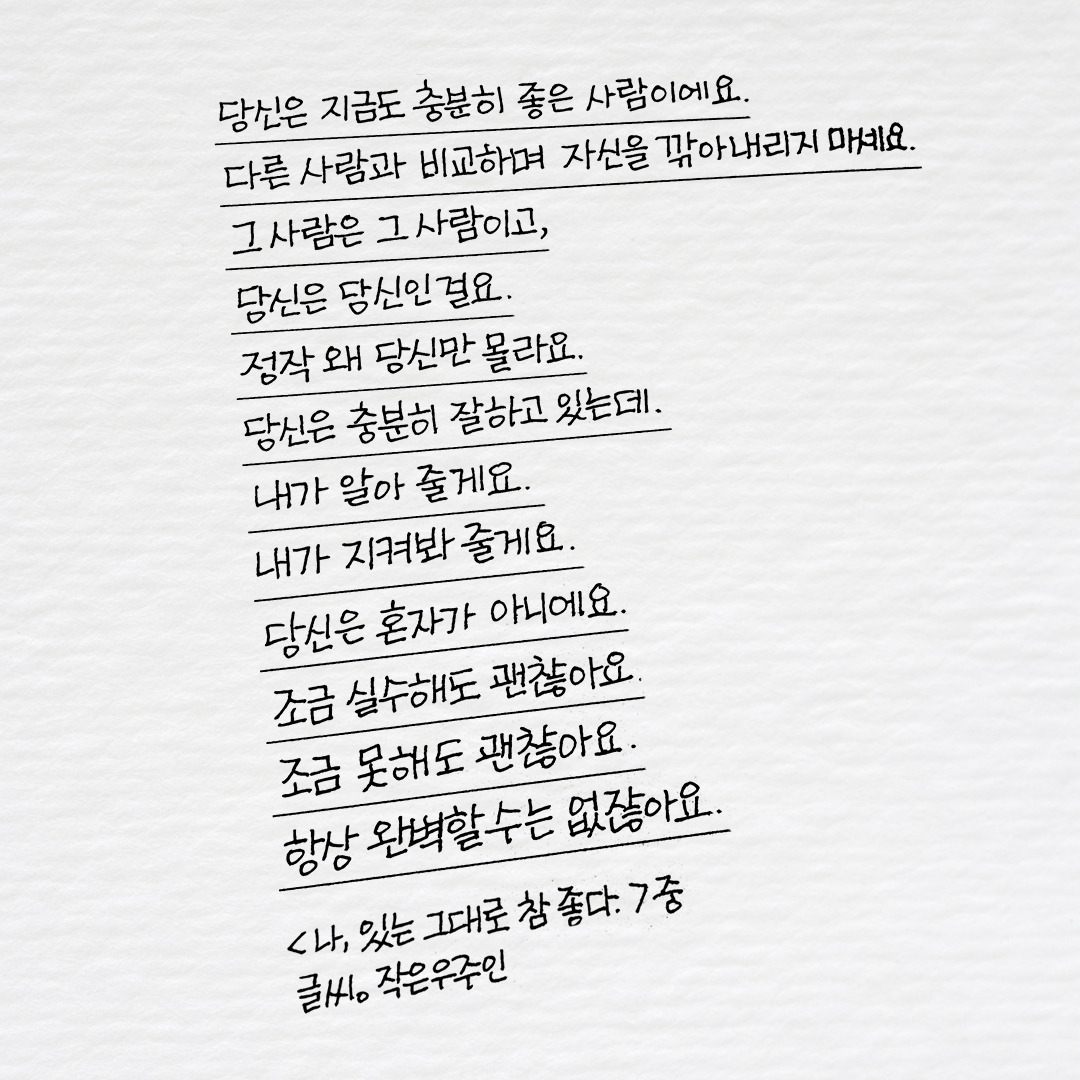 당신은 지금도 충분히 좋은 사람이에요.
다른 사람과 비교하며 자신을 깎아내리지 마세요.
그 사람은 그 사람이고,
당신은 당신인걸요.
정작 왜 당신만 몰라요.
당신은 충분히 잘하고 있는데.
내가 알아 줄게요.
내가 지켜봐 줄게요.
당신은 혼자가 아니에요.
조금 실수해도 괜찮아요.
조금 못해도 괜찮아요.
항상 완벽할 수는 없잖아요.
<나, 있는 그대로 참 좋다.> 중
글씨。작은우주인